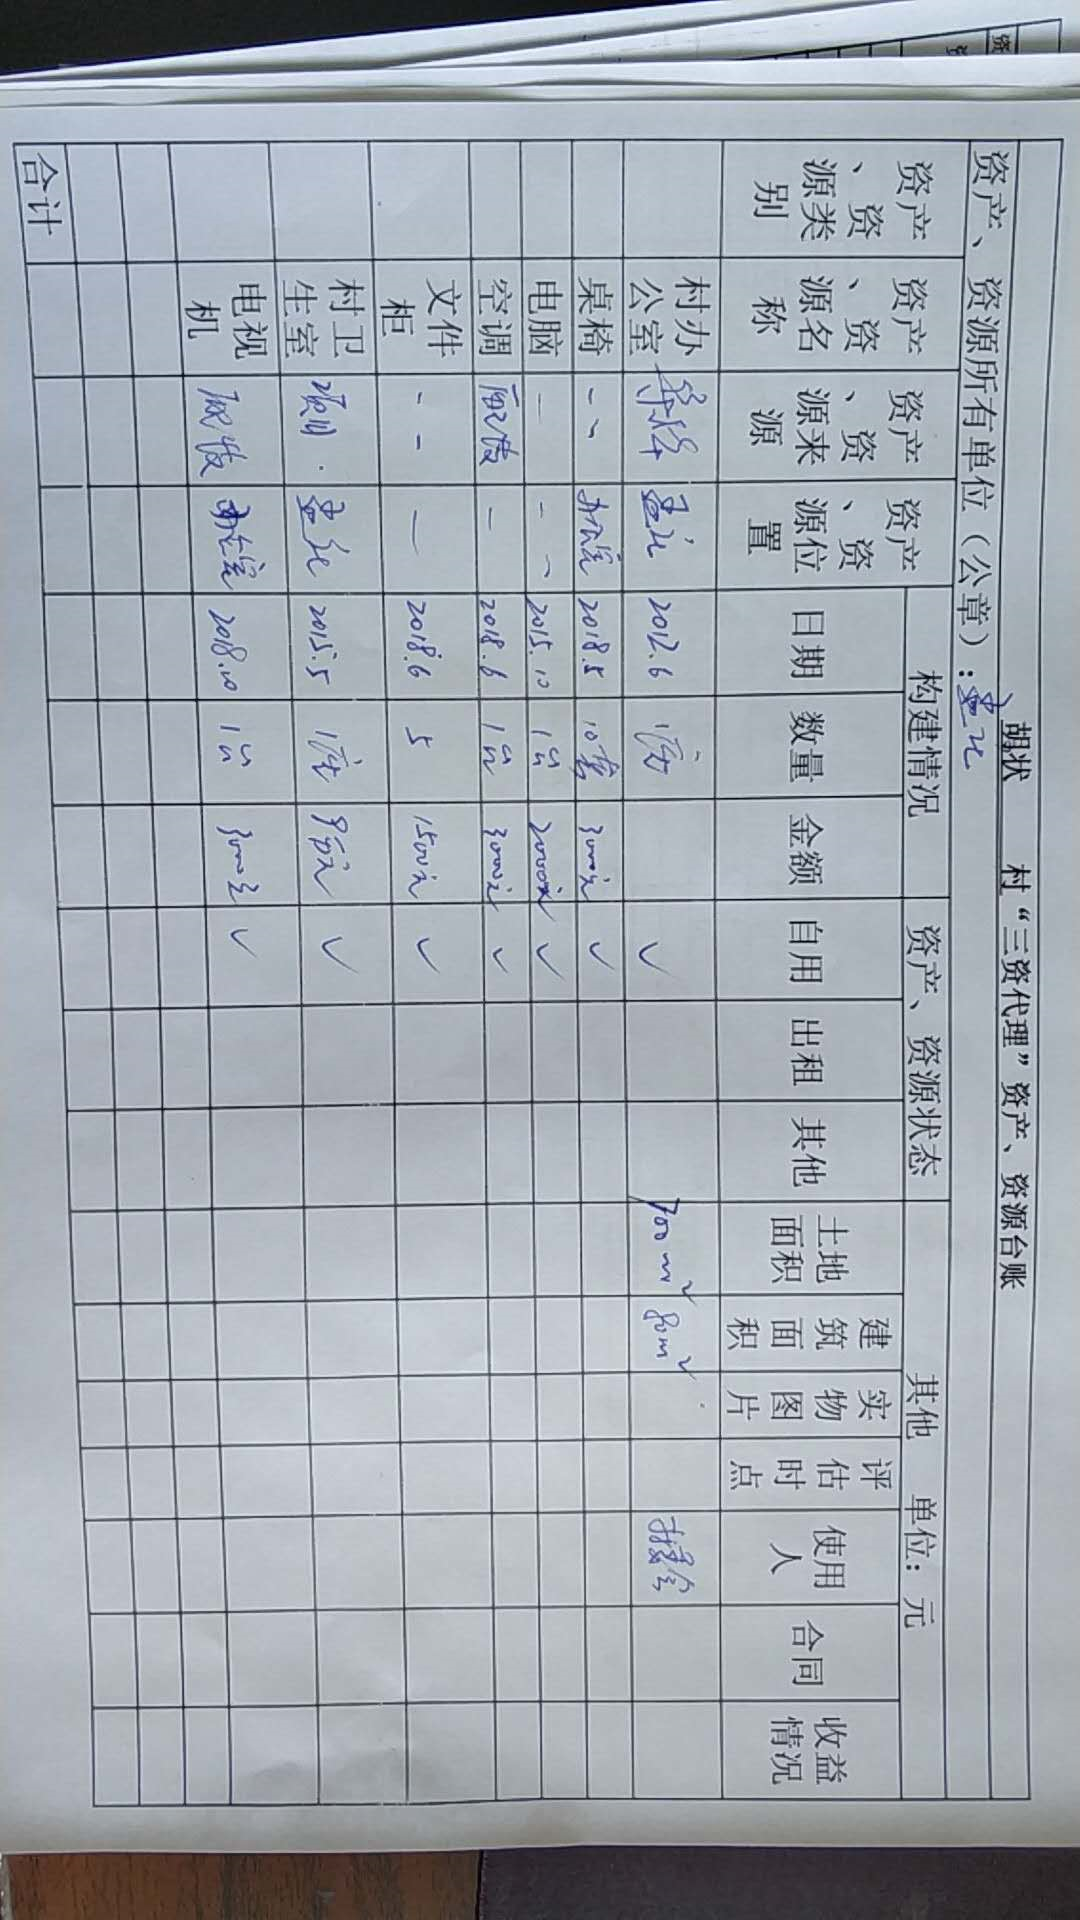 胡状 村“三资代理”资产、资源台账
资产、资源所有单位（公章）： 单位：元
资产、资源类别 资产、资源名称 资产、资源来源 资产、资源位置 构建情况 资产、资源状态 其他
日期 数量 金额 自用 出租 其他 土地面积 建筑面积 实物图片 评估时点 使用人 合同 收益情况
村办公室 2012.6 ✓ 700m² 80m²
桌椅 办公室 2018.5 10套 3000元 ✓
电脑 2015.10 1台 2000元 ✓
空调 2018.6 1台 3000元 ✓
文件柜 2018.6 5 1500元 ✓
村卫生室 项目 2015.5 1座 9万元 ✓
电视机 办公室 2018.10 1台 3000元 ✓
合计